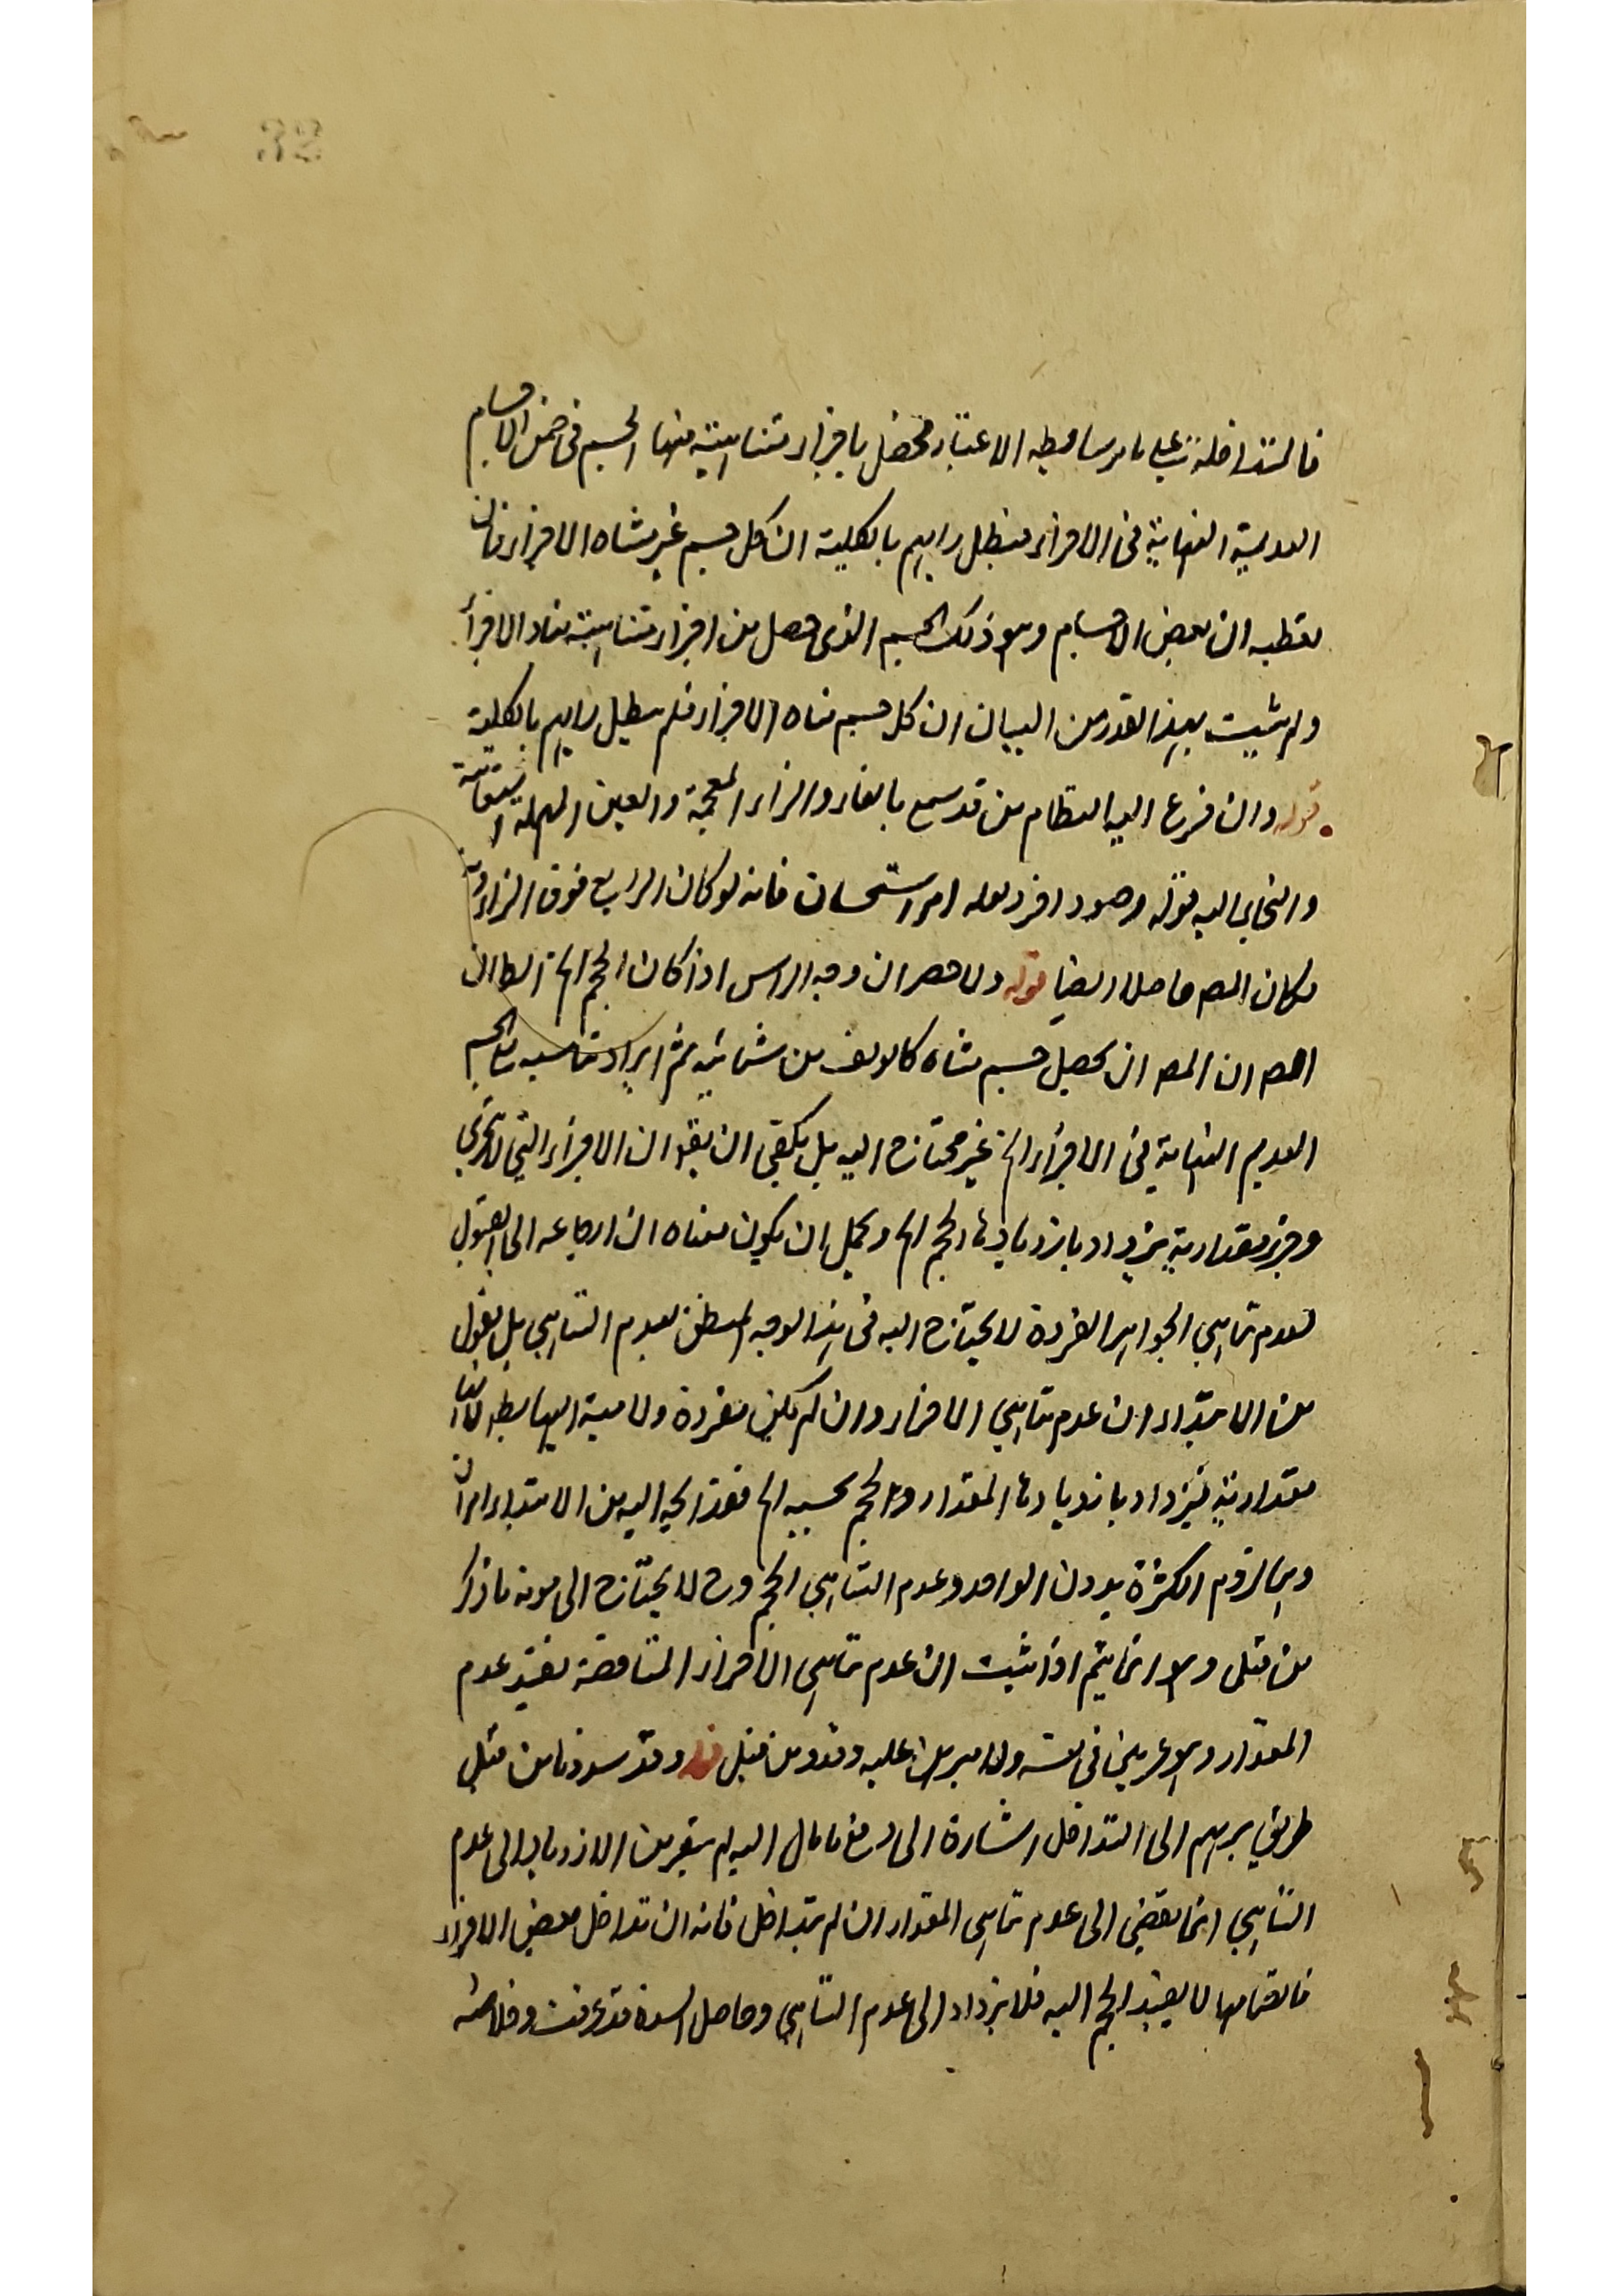 فالمتداخلة على ما مر ساقطة الاعتبار محصل باجزاء متناهية منها الجسم فى ضمن الاجسام
العديمة النهاية فى الاجزاء فبطل رايهم بالكلية ان كل جسم غير متناه الاجزاء فان
ان بعض الاجسام وهو ذلك الجسم الذى حصل من اجزاء متناهية متناه الاجزاء
ولم يثبت بهذا القدر من البيان ان كل جسم متناه الاجزاء فلم يبطل رايهم بالكلية
قوله وان فزع اليه النظام من قد سمع بالفاء والزاء المعجمة والعين المهملة
والتجاى اليه قوله وجود اخر لعله امر استحسان فانه لو كان الرابع فوق الزاوية
لكان حاصلا ايضا قوله ولا حصر ان وجه الراس اذا كان الحجم الخ
ان المص ان يحصل جسم متناه كالمولف من ثمانية ثم ايراد تناسبه مع الجسم
العديم النهاية فى الاجزاء الخ غير محتاج اليه بل يكفى ان يقول ان الاجزاء التى لا تتجزى
وجزء مقدارية يزداد بازديادها الحجم الخ ويحتمل ان يكون معناه ان ارجاعه الى القبول
لعدم تناهى الجواهر الفردة لا يحتاج اليه فى هذا الوجه المبطل لعدم التناهى بل نقول
من الابتداء ان عدم تناهى الاجزاء وان لم يكن مفردة ولا
مقدارية فيزداد بازديادها المقدار والحجم بحسبه الخ فقد اليه من الابتداء امران
وهما لزوم الكثرة بدون الواحد وعدم التناهى الحجم وح لا يحتاج الى مونة ما ذكر
من قبل وهو انما يتم اذا ثبت ان عدم تناهى الاجزاء المتناقصة يفيد عدم
المقدار وهو غير بين فى نفسه ولا مبرهن عليه وقد من قبل قوله وقد سددنا من قبل
طريق بربهم الى التداخل اشارة الى دفع ما مال اليه لم يتقرر من الازدياد الى عدم
التناهى انما يقضى الى عدم تناهى المقدار ان لم يتداخل فانه ان تداخل بعض الاجزاء
فانضمامها لا يفيد الحجم اليه فلا يزداد الى عدم التناهى وحاصل السد قد عرفت وخلاصته